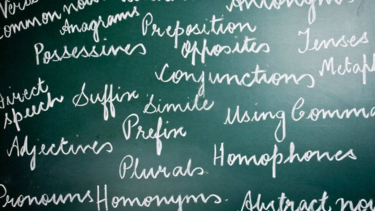 Verbs
Common nouns
Anagrams
Preposition
Antonyms
Possessives
Opposites
Tenses
Conjunctions
Direct
speech
Suffix
Simile
Using Comma
Adjectives
Prefix
Plurals
Homophones
Pronouns
Homonyms
Abstract